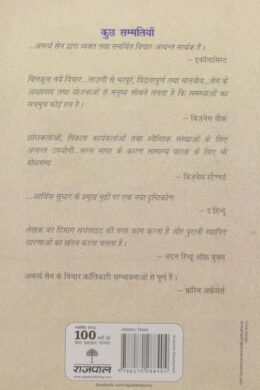 कुछ सम्मतियाँ
...अमर्त्य सेन द्वारा व्यक्त तथा समर्थित विचार अत्यन्त सार्थक हैं।
– इकॉनामिस्ट
बिलकुल नये विचार...ताज़गी से भरपूर, विद्वत्तापूर्ण तथा मानवीय...सेन के
आशावाद तथा योजनाओं से मनुष्य सोचने लगता है कि समस्याओं का
सचमुच कोई हल है।
– बिज़नेस वीक
शोधकर्ताओं, विकास कार्यकर्ताओं तथा स्वैच्छिक संस्थाओं के लिए
अत्यन्त उपयोगी...सरल भाषा के कारण सामान्य पाठक के लिए भी
बोधगम्य
– बिज़नेस स्टैण्डर्ड
...आर्थिक सुधार के प्रमुख मुद्दों पर एक नया दृष्टिकोण
– द हिन्दू
लेखक का दिमाग सर्चलाइट की तरह काम करता है और पुरानी स्थापित
धारणाओं का खंडन करता चलता है।
– लंदन रिव्यू ऑफ़ बुक्स
अमर्त्य सेन के विचार क्रांतिकारी सम्भावनाओं से पूर्ण हैं।
– फ़ॉरेन अफ़ेयर्स
100
राजपाल